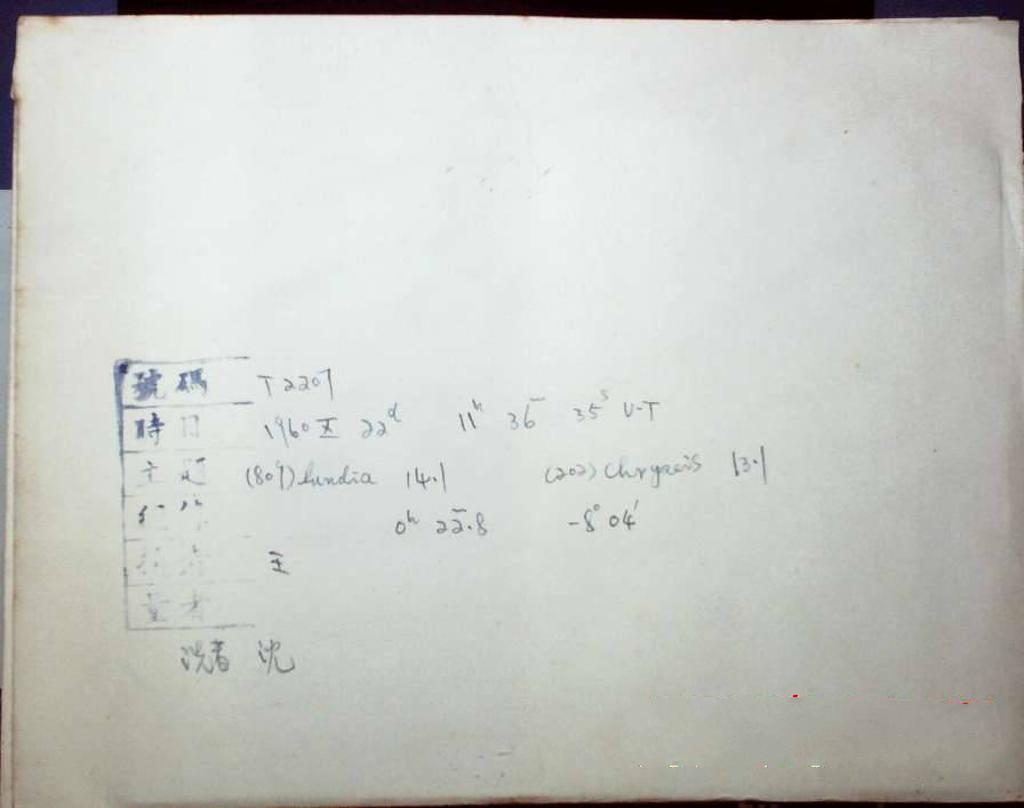 號碼 T2207
時日 1960 X 22ᵈ 11ʰ 36ᵐ 35ˢ U.T
主題 (809) Lundia 14.1 (202) Chryseis 13.1
0ʰ 22ᵐ.8 -8° 04′
王
量者
洗者 沈